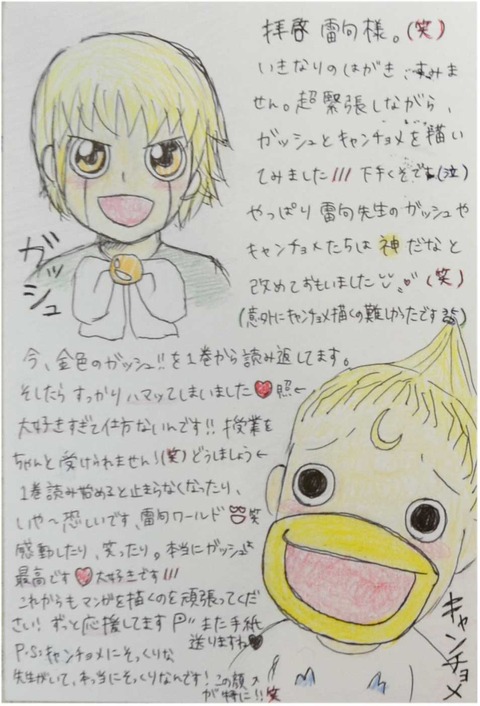 拝啓 雷句様。(笑)
いきなりのはがき、すみま
せん。超緊張しながら、
ガッシュとキャンチョメを描い
てみました!!! 下手くそです(泣)
やっぱり雷句先生のガッシュや
キャンチョメたちは神だなと
改めておもいました (笑)
(意外にキャンチョメ描くの難しかったです
ガッシュ
今、金色のガッシュ!!を1巻から読み返してます。
そしたらすっかりハマッてしまいました♥照←
大好きすぎて仕方ないんです!! 授業を
ちゃんと受けられません!(笑)どうしましょう←
1巻読み始めると止まらなくなったり、
いや〜恐しいです、雷句ワールド 笑
感動したり、笑ったり。本当にガッシュは
最高です♥大好きです!!!
これからもマンガを描くのを頑張ってくだ
さい! ずっと応援してます また手紙
送りますね♥
P.S:キャンチョメにそっくりな
先生がいて、本当にそっくりなんです! この顔
が特に!!笑
キャンチョメ